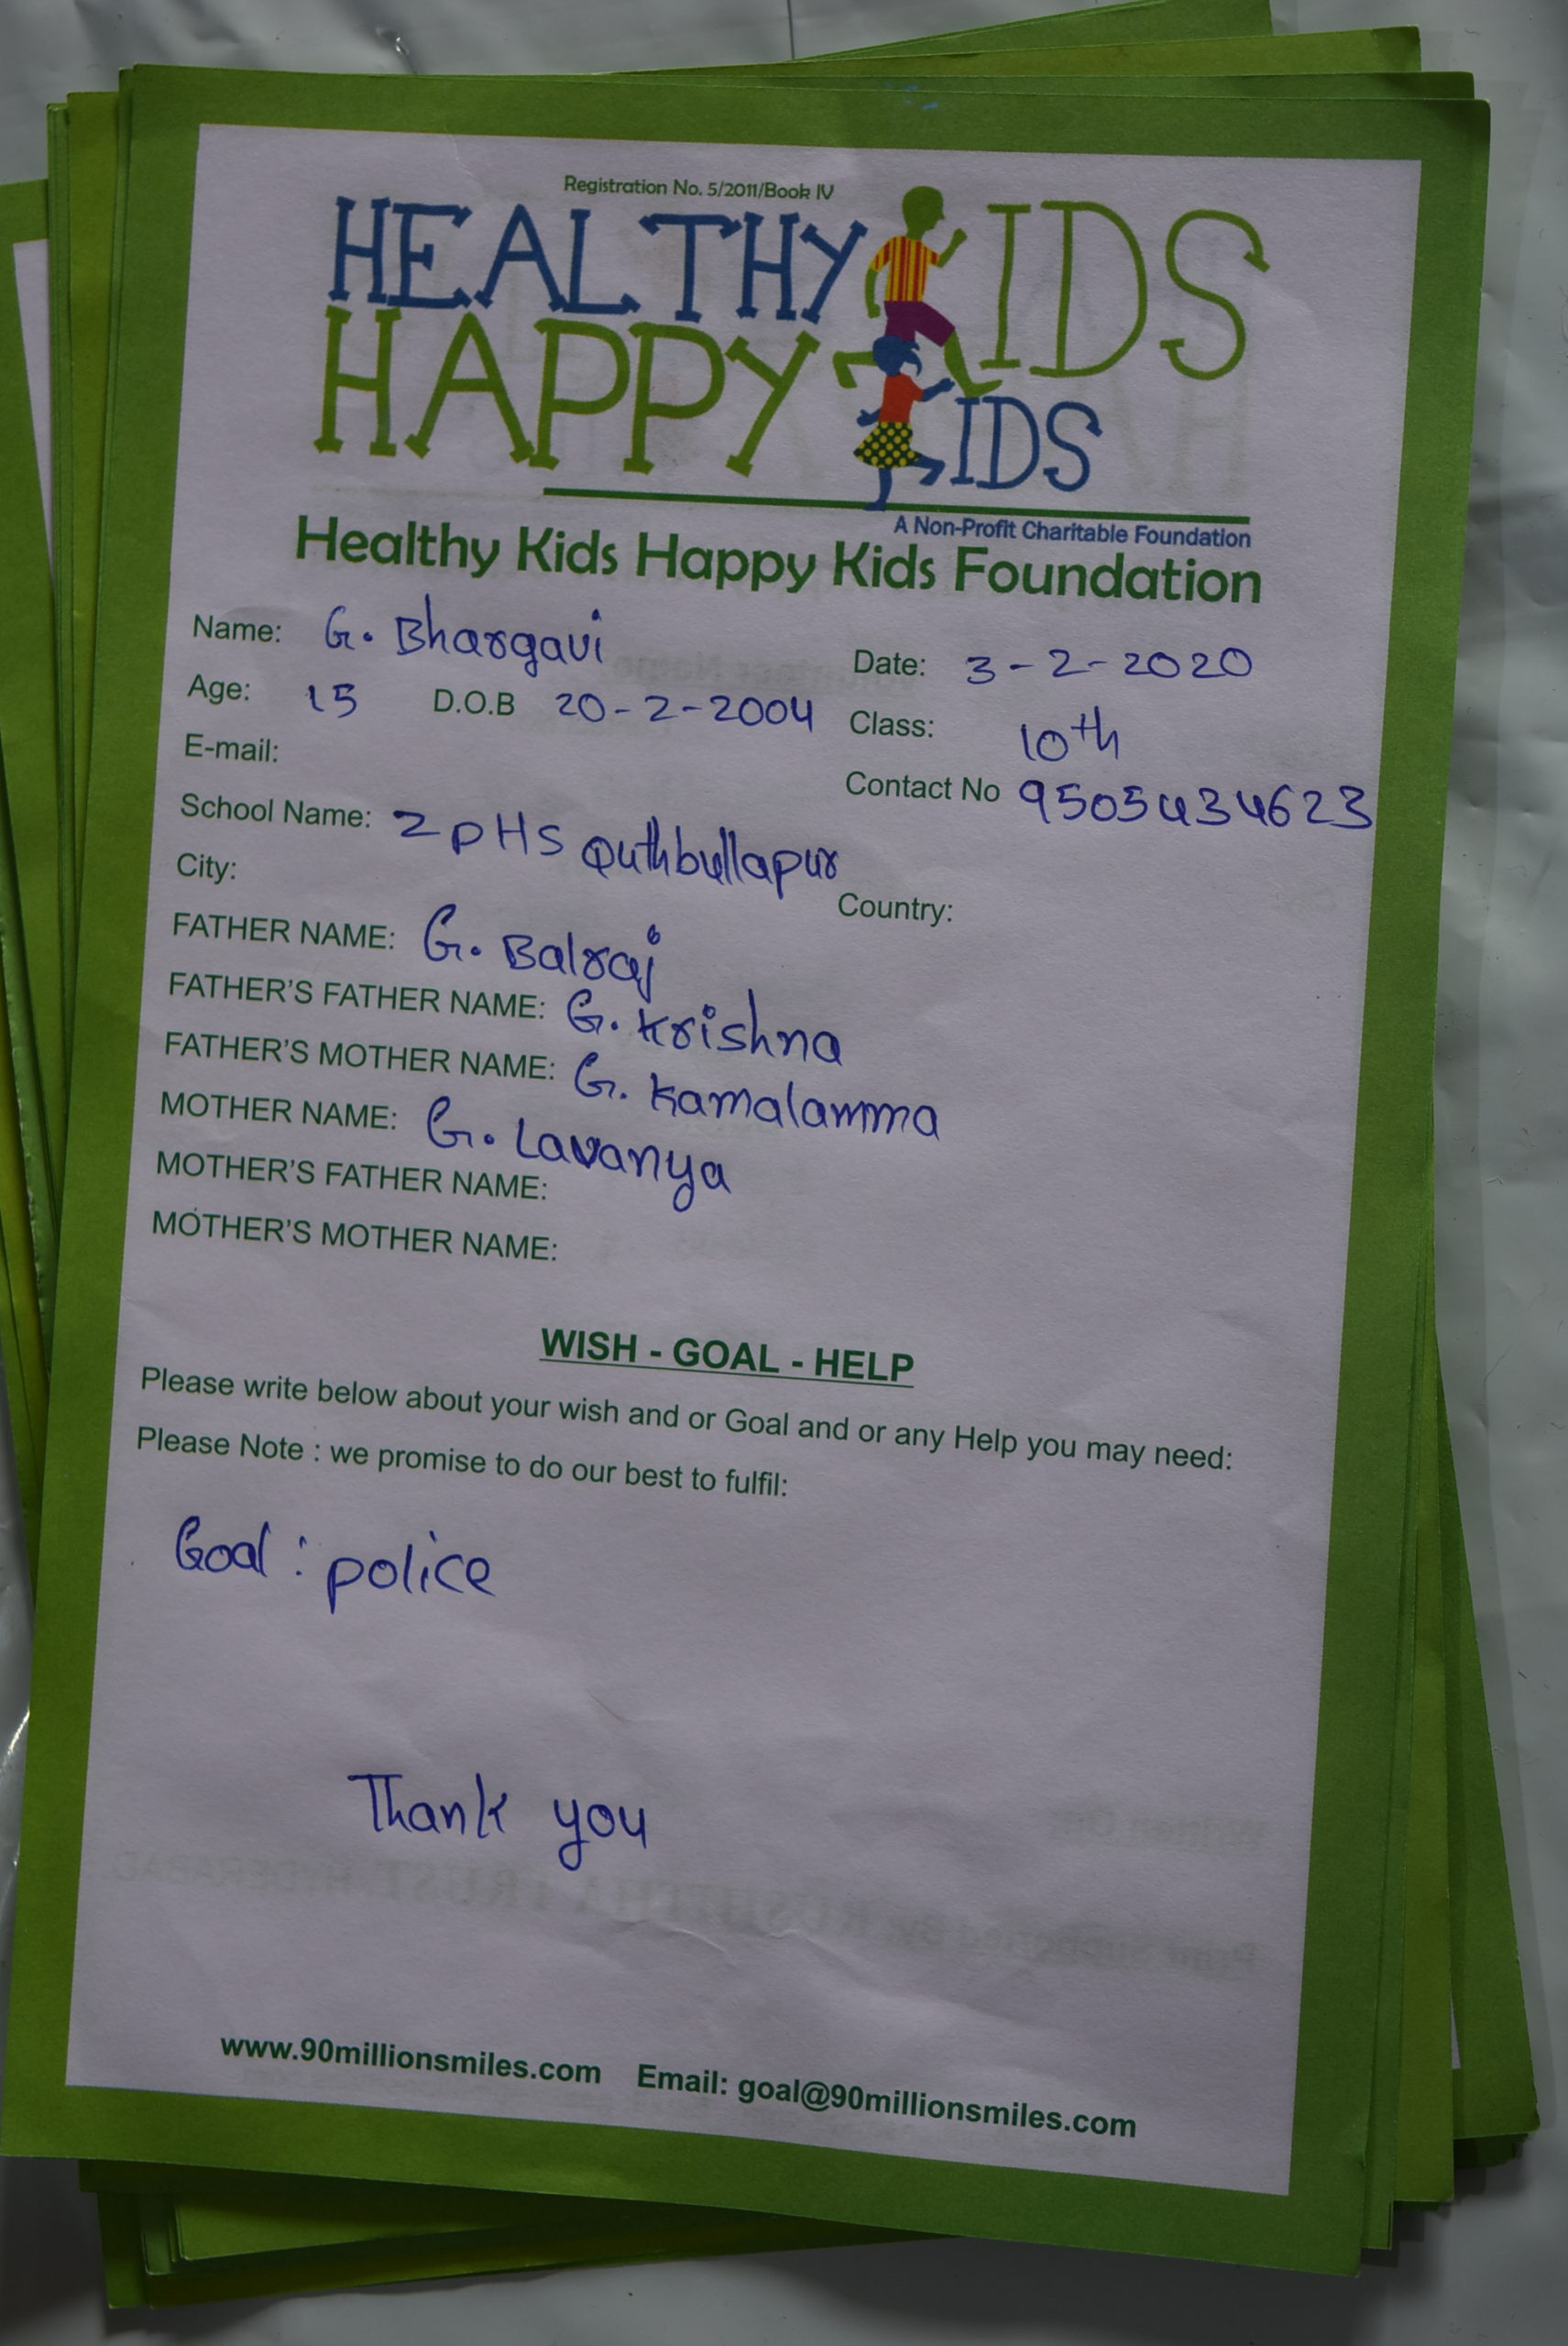 Registration No. 5/2011/Book IV
HEALTHY KIDS
HAPPY KIDS
A Non-Profit Charitable Foundation
Healthy Kids Happy Kids Foundation
Name: G. Bhargavi Date: 3-2-2020
Age: 15 D.O.B 20-2-2004 Class: 10th
E-mail: Contact No 9505434623
School Name: ZPHS Quthbullapur
City: Country:
FATHER NAME: G. Balraj
FATHER'S FATHER NAME: G. Krishna
FATHER'S MOTHER NAME: G. Kamalamma
MOTHER NAME: G. Lavanya
MOTHER'S FATHER NAME:
MOTHER'S MOTHER NAME:
WISH - GOAL - HELP
Please write below about your wish and or Goal and or any Help you may need:
Please Note : we promise to do our best to fulfil:
Goal : police
Thank you
www.90millionsmiles.com Email: goal@90millionsmiles.com